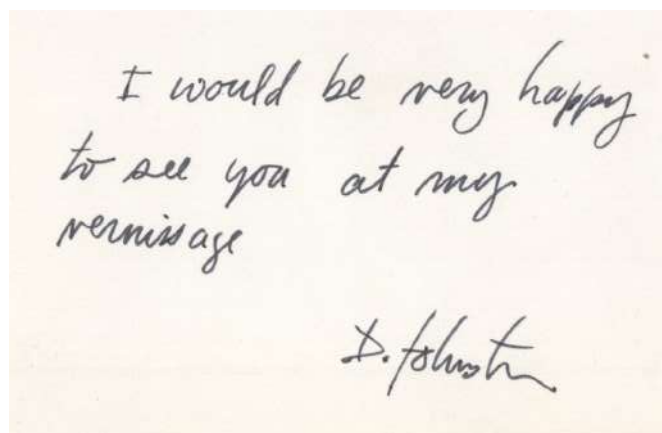 I would be very happy
to see you at my
vernissage
D. Johnston